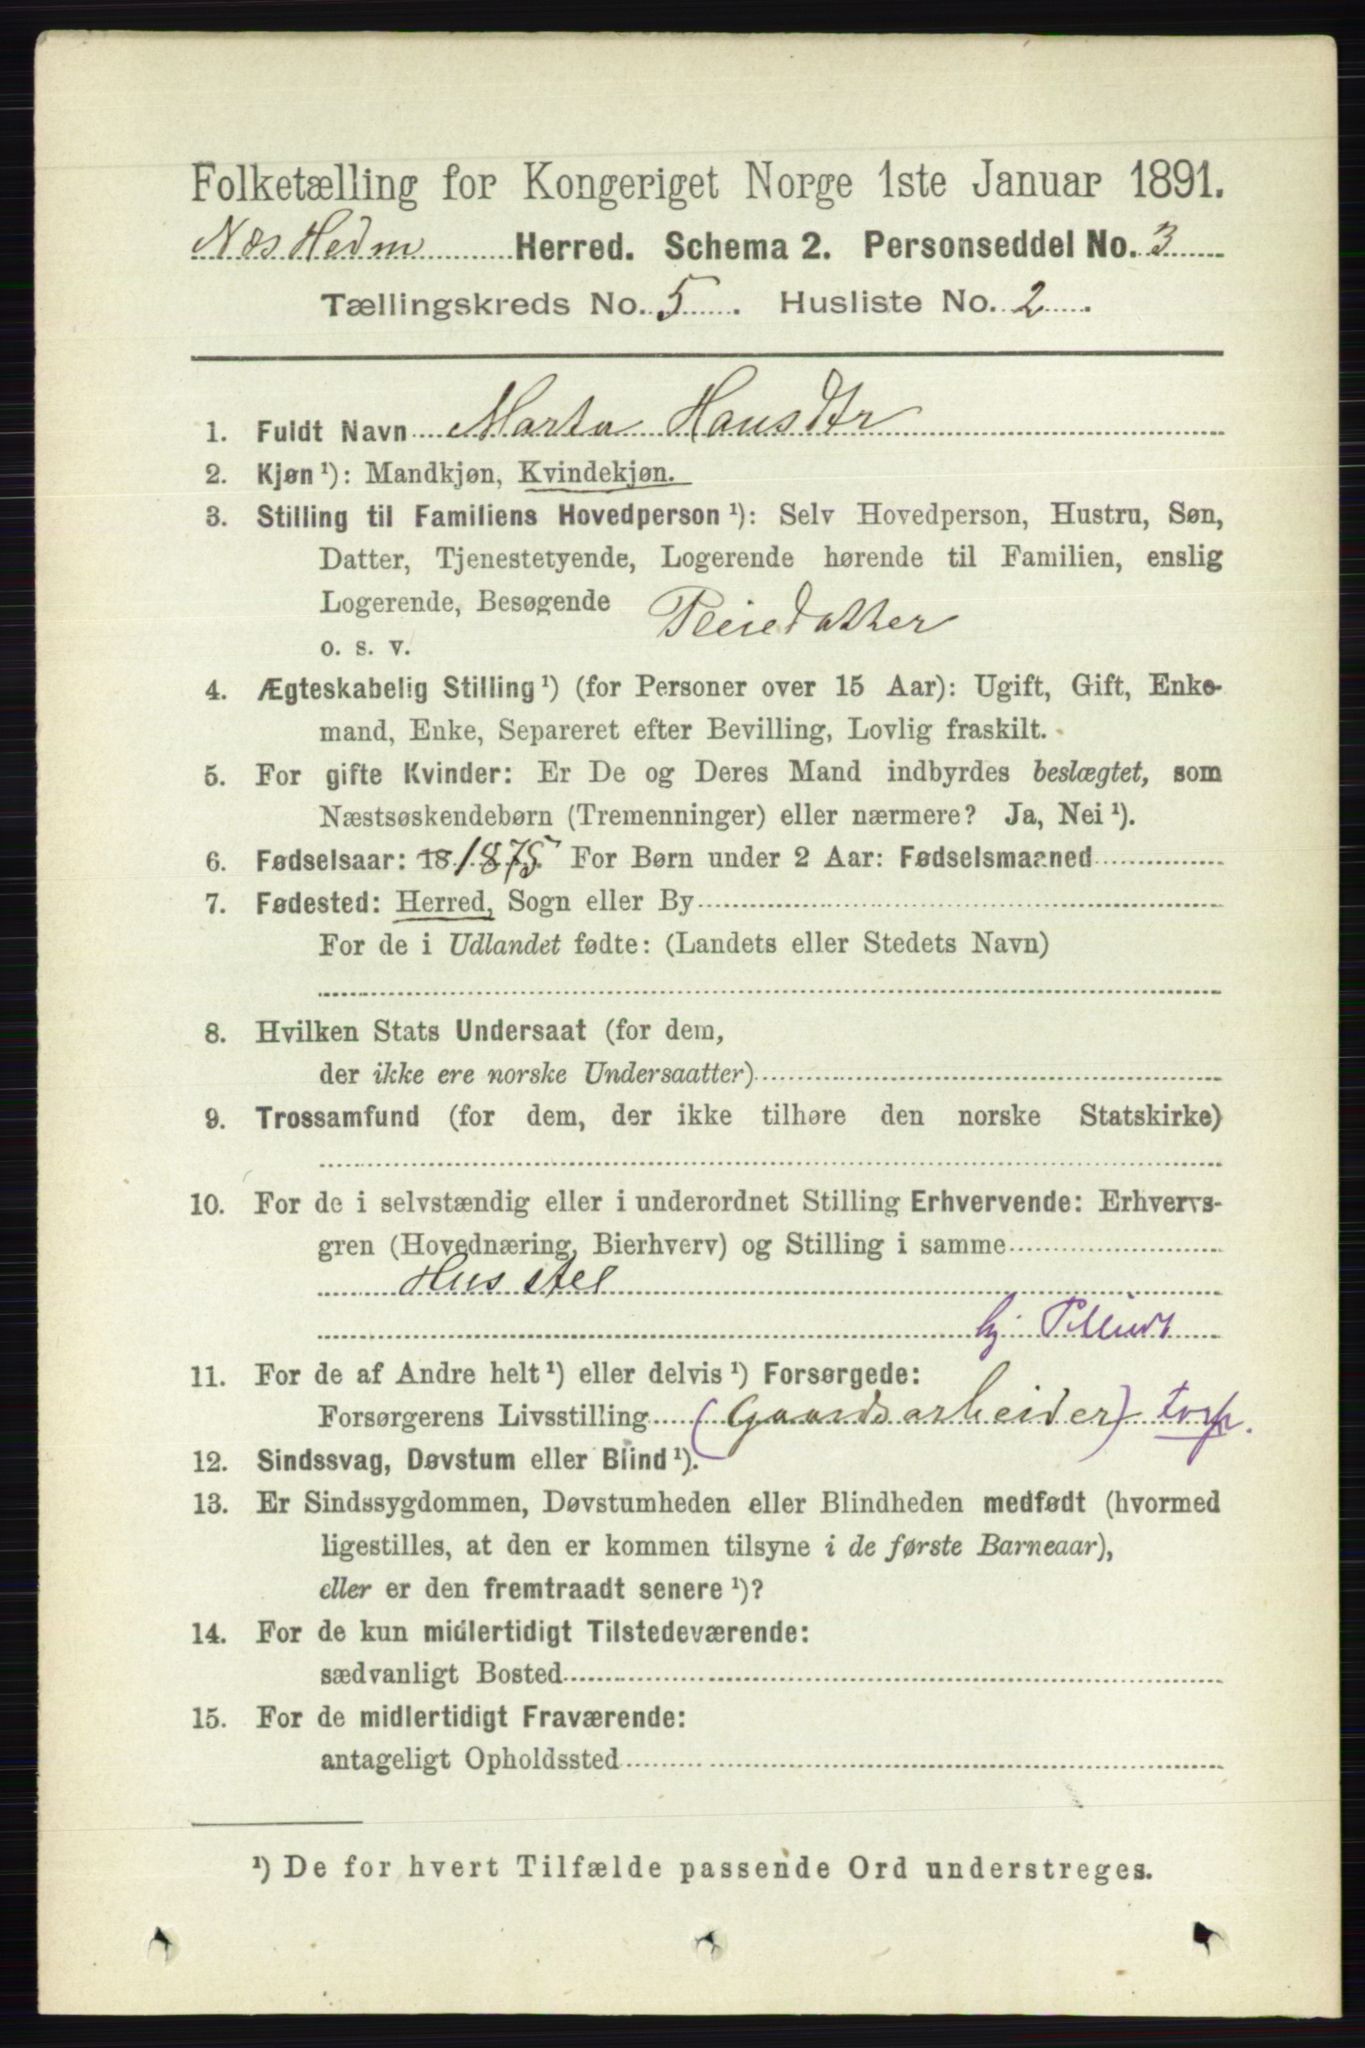 Folketælling for Kongeriget Norge 1ste Januar 1891.
Næs Hedm Herred. Schema 2. Personseddel No. 3
Tællingskreds No. 5. Husliste No. 2.
1. Fuldt Navn Marta Hansdtr
2. Kjøn ¹): Mandkjøn, Kvindekjøn.
3. Stilling til Familiens Hovedperson ¹): Selv Hovedperson, Hustru, Søn,
Datter, Tjenestetyende, Logerende hørende til Familien, enslig
Logerende, Besøgende Pleiedatter
o. s. v.
4. Ægteskabelig Stilling ¹) (for Personer over 15 Aar): Ugift, Gift, Enke-
mand, Enke, Separeret efter Bevilling, Lovlig fraskilt.
5. For gifte Kvinder: Er De og Deres Mand indbyrdes beslægtet, som
Næstsøskendebørn (Tremenninger) eller nærmere? Ja, Nei ¹).
6. Fødselsaar: 18 1875. For Børn under 2 Aar: Fødselsmaaned
7. Fødested: Herred, Sogn eller By
For de i Udlandet fødte: (Landets eller Stedets Navn)
8. Hvilken Stats Undersaat (for dem,
der ikke ere norske Undersaatter)
9. Trossamfund (for dem, der ikke tilhøre den norske Statskirke)
10. For de i selvstændig eller i underordnet Stilling Erhvervende: Erhvervs-
gren (Hovednæring, Bierhverv) og Stilling i samme
Husstel
11. For de af Andre helt ¹) eller delvis ¹) Forsørgede:
Forsørgerens Livsstilling (Gaardsarbeider)
12. Sindssvag, Døvstum eller Blind ¹).
13. Er Sindssygdommen, Døvstumheden eller Blindheden medfødt (hvormed
ligestilles, at den er kommen tilsyne i de første Barneaar),
eller er den fremtraadt senere ¹)?
14. For de kun midlertidigt Tilstedeværende:
sædvanligt Bosted
15. For de midlertidigt Fraværende:
antageligt Opholdssted
¹) De for hvert Tilfælde passende Ord understreges.